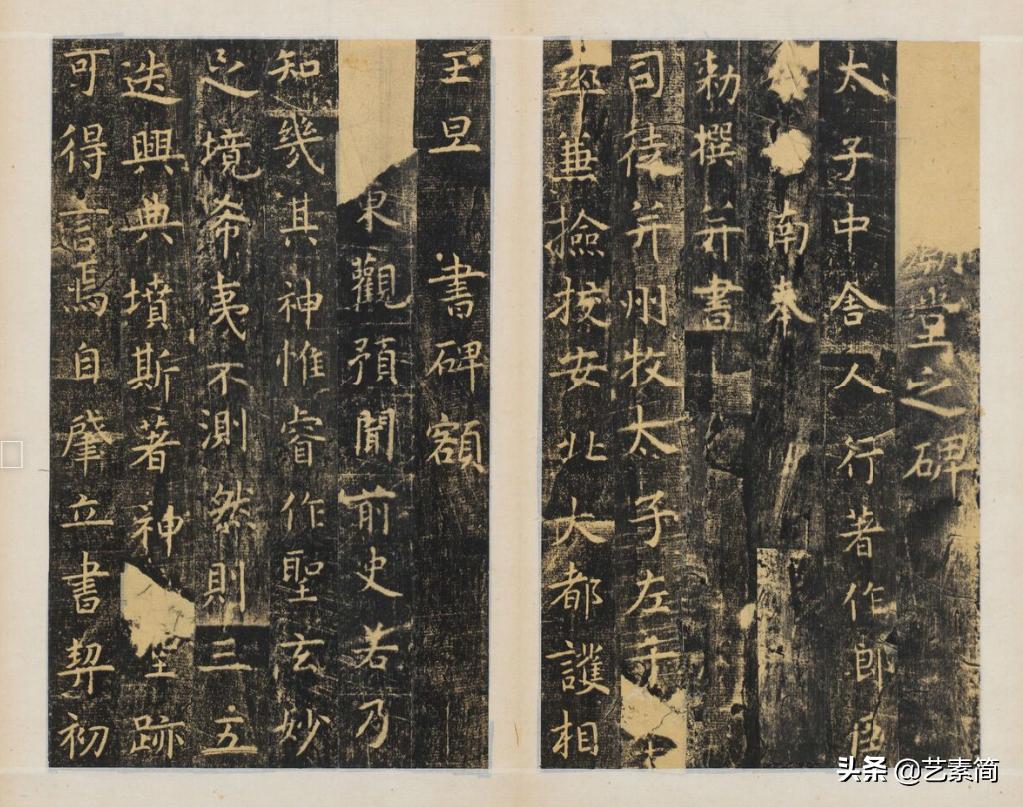 堂之碑
太子中舍人行著作郎臣
南奉
勅撰并書
司徒并州牧太子左千
率兼撿挍安北大都護相
王旦書碑額
東觀預聞前史若乃
知幾其神惟睿作聖玄妙
之境希夷不測然則三五
迭興典墳斯著神聖跡
可得言焉自肇立書契初
头条 @艺素简